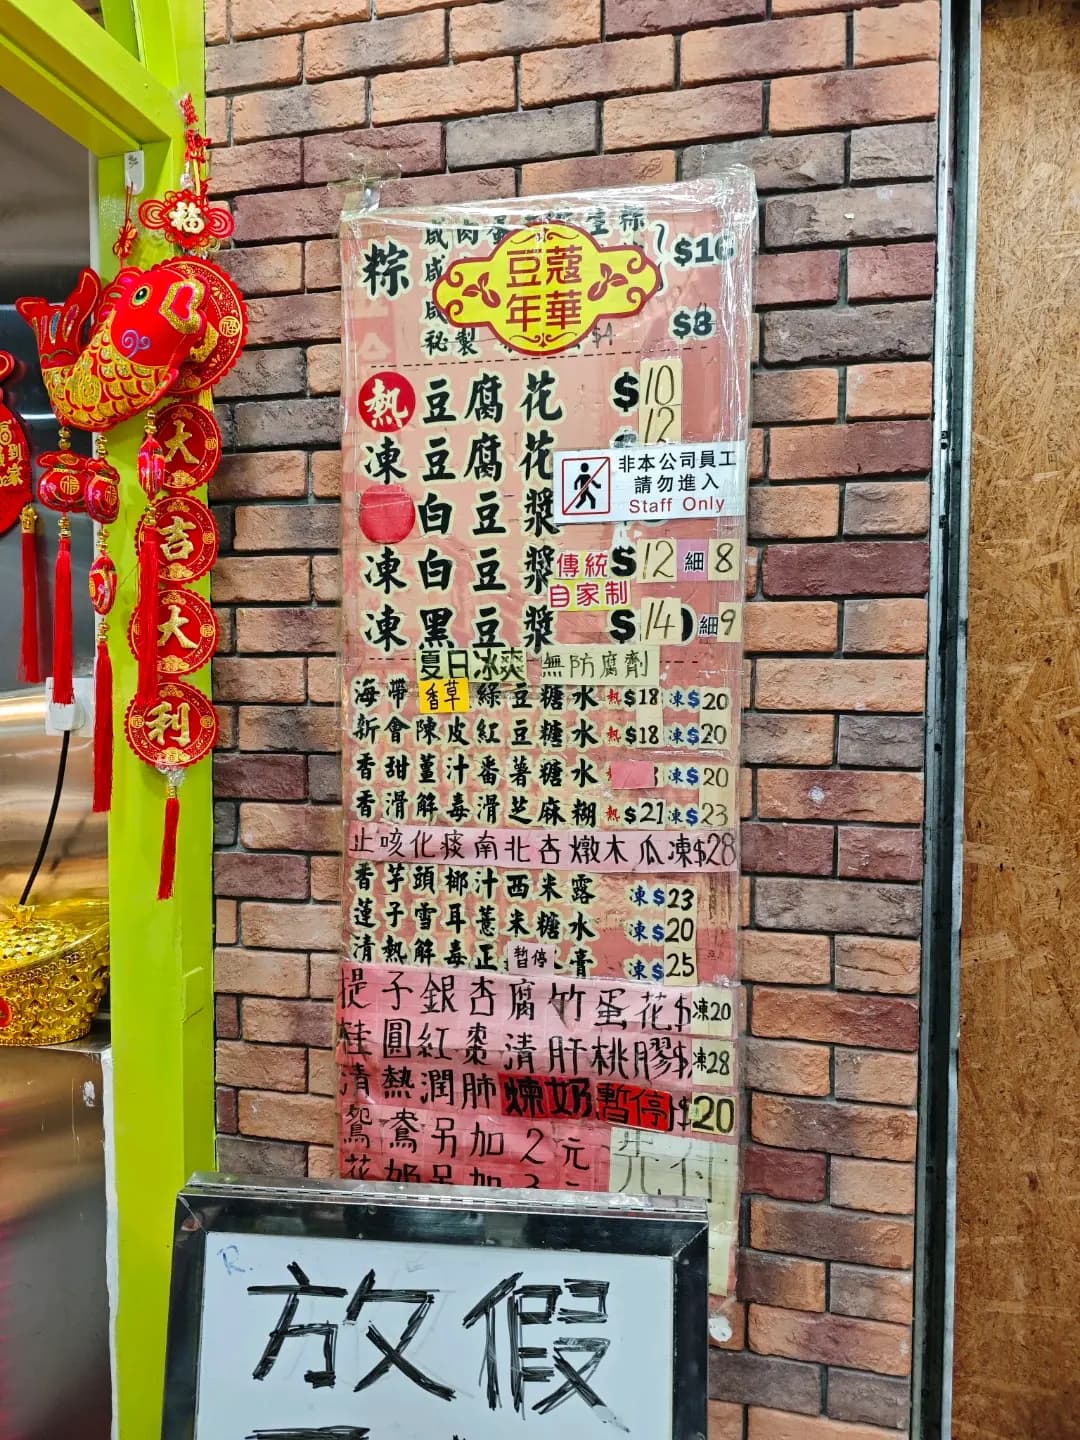 福
大
吉
大
利
粽
咸肉蛋
粽
$16
咸
咸
秘製
$4
$8
豆蔻
年華
熱豆腐花 $10
凍豆腐花 12
白豆漿
凍白豆漿 $12 細8
凍黑豆漿 $14 細9
非本公司員工
請勿進入
Staff Only
傳統
自家制
夏日冰爽 無防腐劑
海帶香草綠豆糖水 熱$18 凍$20
新會陳皮紅豆糖水 熱$18 凍$20
香甜薑汁番薯糖水 凍$20
香滑解毒滑芝麻糊 熱$21 凍$23
止咳化痰南北杏燉木瓜凍$28
香芋頭椰汁西米露 凍$23
蓮子雪耳薏米糖水 凍$20
清熱解毒正暫停膏 凍$25
提子銀杏腐竹蛋花$凍20
桂圓紅棗清肝桃膠$凍28
清熱潤肺煉奶暫停$20
鴛鴦另加2元
花奶另加3元
先付
R.
放假